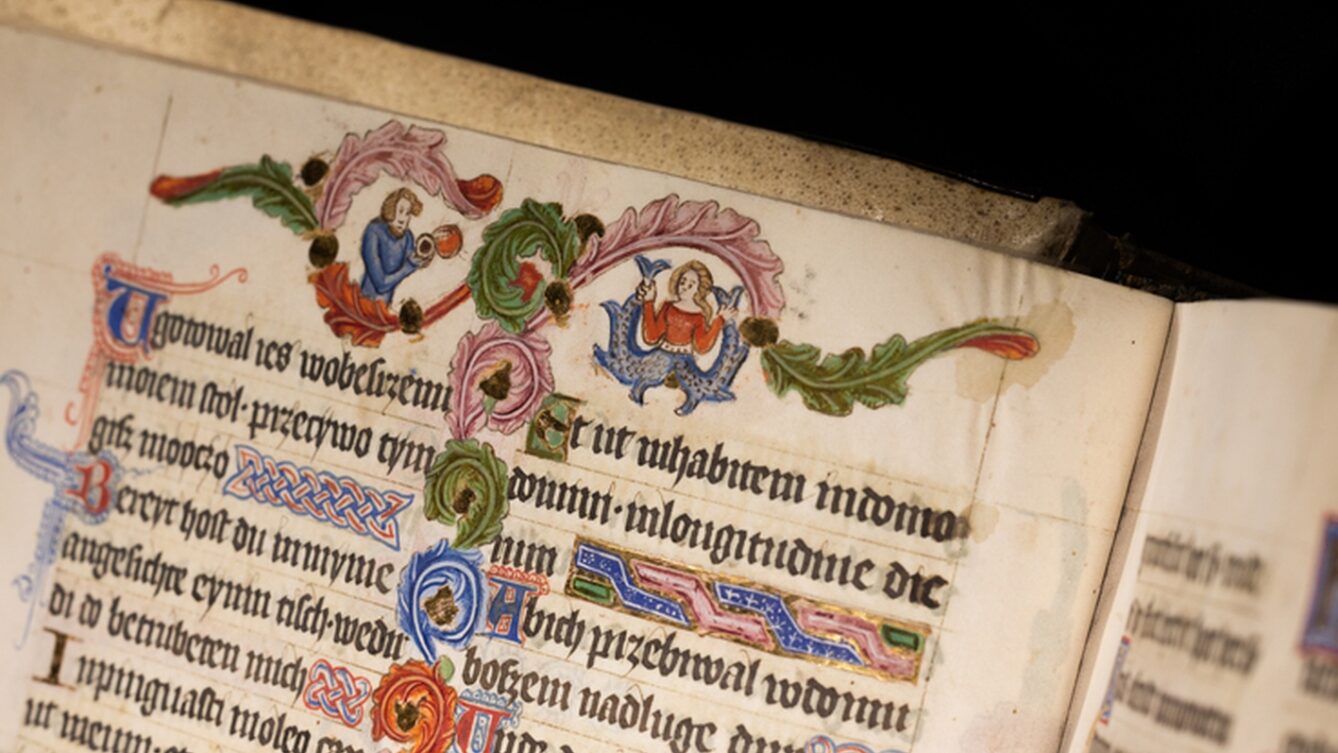 Ugotowal ies wobesrzenu
moiem stol· przecywo tym
gisz mooczo
Bereyt host du inmyne
angesichte eynin tisch·wedir
di do betrubeten mich
Inpinguasti inoleo
ut meum·
Et ut inhabitem indomo
domini·inlongitudine die
rum
Abich przebiwal wdomu
boszem nadluge
Unde